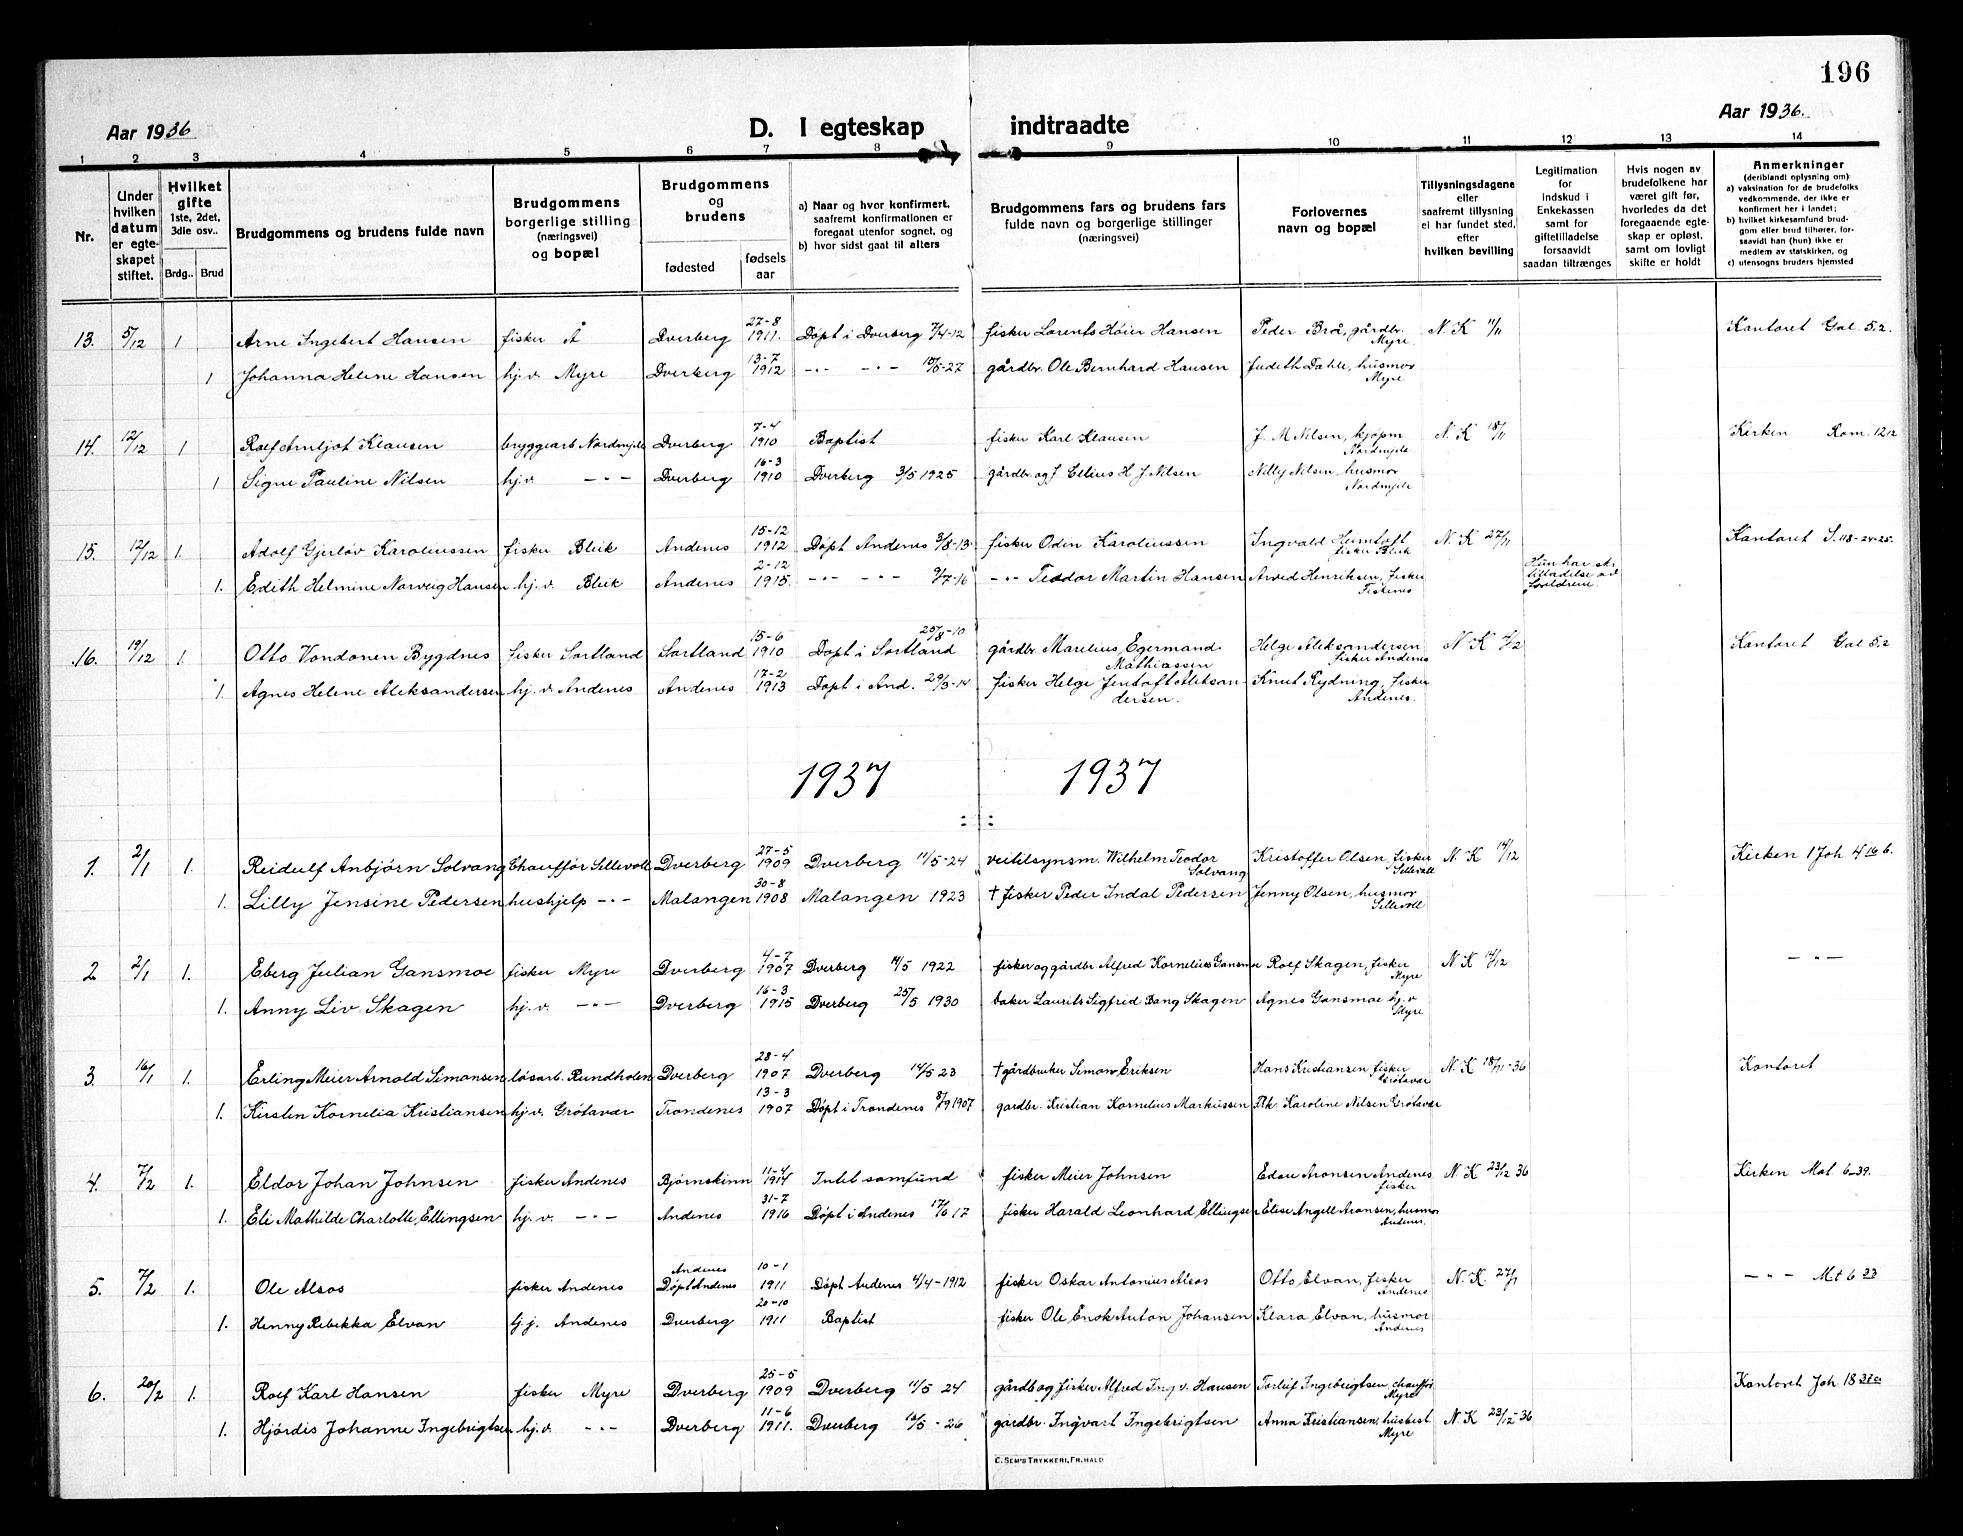 196
Aar 1936 D. I egteskap indtraadte Aar 1936.
1 2 3 4 5 6 7 8 9 10 11 12 13 14
Nr.
Under hvilken datum er egteskapet stiftet.
Hvilket gifte 1ste, 2det, 3die osv..
Brdg.. Brud
Brudgommens og brudens fulde navn
Brudgommens borgerlige stilling (næringsvei) og bopæl
Brudgommens og brudens
fødested fødsels aar
a) Naar og hvor konfirmert, saafremt konfirmationen er foregaat utenfor sognet, og
b) hvor sidst gaat til alters
Brudgommens fars og brudens fars fulde navn og borgerlige stillinger (næringsvei)
Forlovernes navn og bopæl
Tillysningsdagene eller saafremt tillysning ei har fundet sted, efter hvilken bevilling
Legitimation for indskud i Enkekassen samt for giftetilladelse forsaavidt saadan tiltrænges
Hvis nogen av brudefolkene har været gift før, hvorledes da det foregaaende egteskap er opløst, samt om lovligt skifte er holdt
Anmerkninger (deriblandt oplysning om):
a) vaksination for de brudefolks vedkommende, der ikke er konfirmert her i landet;
b) hvilket kirkesamfund brudgom eller brud tilhører, forsaavidt han (hun) ikke er medlem av statskirken, og
c) utensogns bruders hjemsted
13. 5/12 1 Arne Ingebert Hansen fisker Å Dverberg 27-8 1911. Døpt i Dverberg 7/4-12 fisker Lorents Høier Hansen Peder Brå, gårdbr. Myre. N. K 11/11 Kontoret Gal 5.2.
1 Johanna Helene Hansen hj.v. Myre Dverberg 13-7 1912 -"- -"- gårdbr. Ole Bernhard Hansen Judith Dahle, husmor Myre
14. 12/12 1 Rolf Arnljot Klausen bryggearb Nordmjele Dverberg 7-4 1910 Baptist fisker Karl Klausen J. M Nilsen, kjøpm Nordmjele N. K 18/11 Kirken Rom. 12 12
1 Signe Pauline Nilsen hj.v. -"- Dverberg 16-3 1910 Dverberg 3/5 1925 gårdbr og f. Ellius H. J. Nilsen Nilly Nilsen, husmor Nordmjele
15. 12/12 1. Adolf Gjerløv Karoliussen fisker Bleik Andenes 15-12 1912 Døpt Andenes 3/8-13 fisker Oden Karoliussen Ingvald Heimtoft fisker Bleik N. K 27/11 Kontoret S. 118-24-25.
1. Edith Helmine Norveig Hansen hj.v. Bleik Andenes 2-12 1915. -"- -"- 9/7-16 -"- Teodor Martin Hansen Arved Henriksen, fisker Fiskenes Hun har sk. tilladelse av foreldrene.
16. 19/12 1. Otto Vondonen Bygdnes fisker Sortland Sortland 15-6 1910 Døpt i Sortland 25/8-10 gårdbr. Marelius Egermand Mathiassen Helge Aleksandersen fisker Andenes N. K 4/12 Kontoret Gal 5,2
1 Agnes Helene Aleksandersen hj.v. Andenes Andenes 17-2 1913 Døpt i And. 29/3-14 fisker Helge Jentoft Aleksandersen. Knut Rydning, fisker Andenes.
1937 1937
1. 2/1 1. Reidulf Anbjørn Solvang Chauffør Sellevoll Dverberg 27-5 1909 Dverberg 11/5-24 veitilsynsm. Wilhelm Teodor Solvang Kristoffer Olsen, fisker Sellevoll N. K 14/12 Kirken 1 Joh 4 16 b.
1. Lilly Jensine Pedersen hushjelp -"- Malangen 30-8 1908 Malangen 1923 † fisker Peder Indal Pedersen Jenny Olsen, husmor Sellevoll
2 2/1 1. Eberg Julian Gansmoe fisker Myre Dverberg 4-7 1907 Dverberg 14/5 1922 fisker og gårdbr Alfred Kornelius Gansmoe Rolf Skagen, fisker Myre N. K 14/12 -"-
1. Anny Liv Skagen hj.v. -"- Dverberg 16-3 1915 Dverberg 25/5 1930 baker Laurits Sigfred Bang Skagen Agnes Gansmoe hj.v Myre
3. 16/1 1. Erling Meier Arnold Simonsen løsarb. Rundholen Dverberg 28-4 1907 Dverberg 14/5 23 † gårdbruker Simon Eriksen Hans Kristiansen fisker Grøtavær N. K 18/11-36 Kontoret
1. Kirsten Kornelia Kristiansen hj.v. Grøtavær Trondenes 13-3 1907 Døpt i Trondenes 8/9 1907 gardbr. Kristian Kornelius Markussen Frk. Karoline Nilsen Grøtavær
4. 7/2 1. Eldor Johan Johnsen fisker Andenes Bjørnskinn 11-4 1914 Intet samfund fisker Meier Johnsen Edor Aronsen Andenes fisker N. K 23/12 36 Kirken Mat 6-39.
1. Eli Mathilde Charlotte, Ellingsen hj.v. -"- Andenes 31-7 1916 Døpt i Andenes 17/6 17 fisker Harald Leonhard, Ellingsen Elise Angell Aronsen, husmor Andenes.
5. 7/2 1. Ole Alsos fisker Andenes Andenes Døpt Andenes 10-1 1911 Døpt Andenes 4/4-1912 fisker Oskar Antonius Alsos Otto Elvan, fisker Andenes N. K. 27/1 -"- Mt 6 33
1. Henny Rebekka Elvan hj. Andenes Dverberg 20-10 1911 Baptist fisker Ole Enok Anton Johansen Klara Elvan, husmor Andenes
6. 20/2 1. Rolf Karl Hansen fisker Myre Dverberg 25-5 1909 Dverberg 11/5 24 gårdb og fisker Alfred Ingv. Hansen Torleif Ingebrigtsen, chauffør Myre Kontoret Joh 18
1. Hjørdis Johanne Ingebrigtsen hj.v. -"- Dverberg 11-6 1911. Dverberg 16/5-26 gårdbr. Ingvart Ingebrigtsen Anna Kristiansen, husbest. Myre N. K 23/12-36
E. SEM'S TRYKKERI, FR. HALD